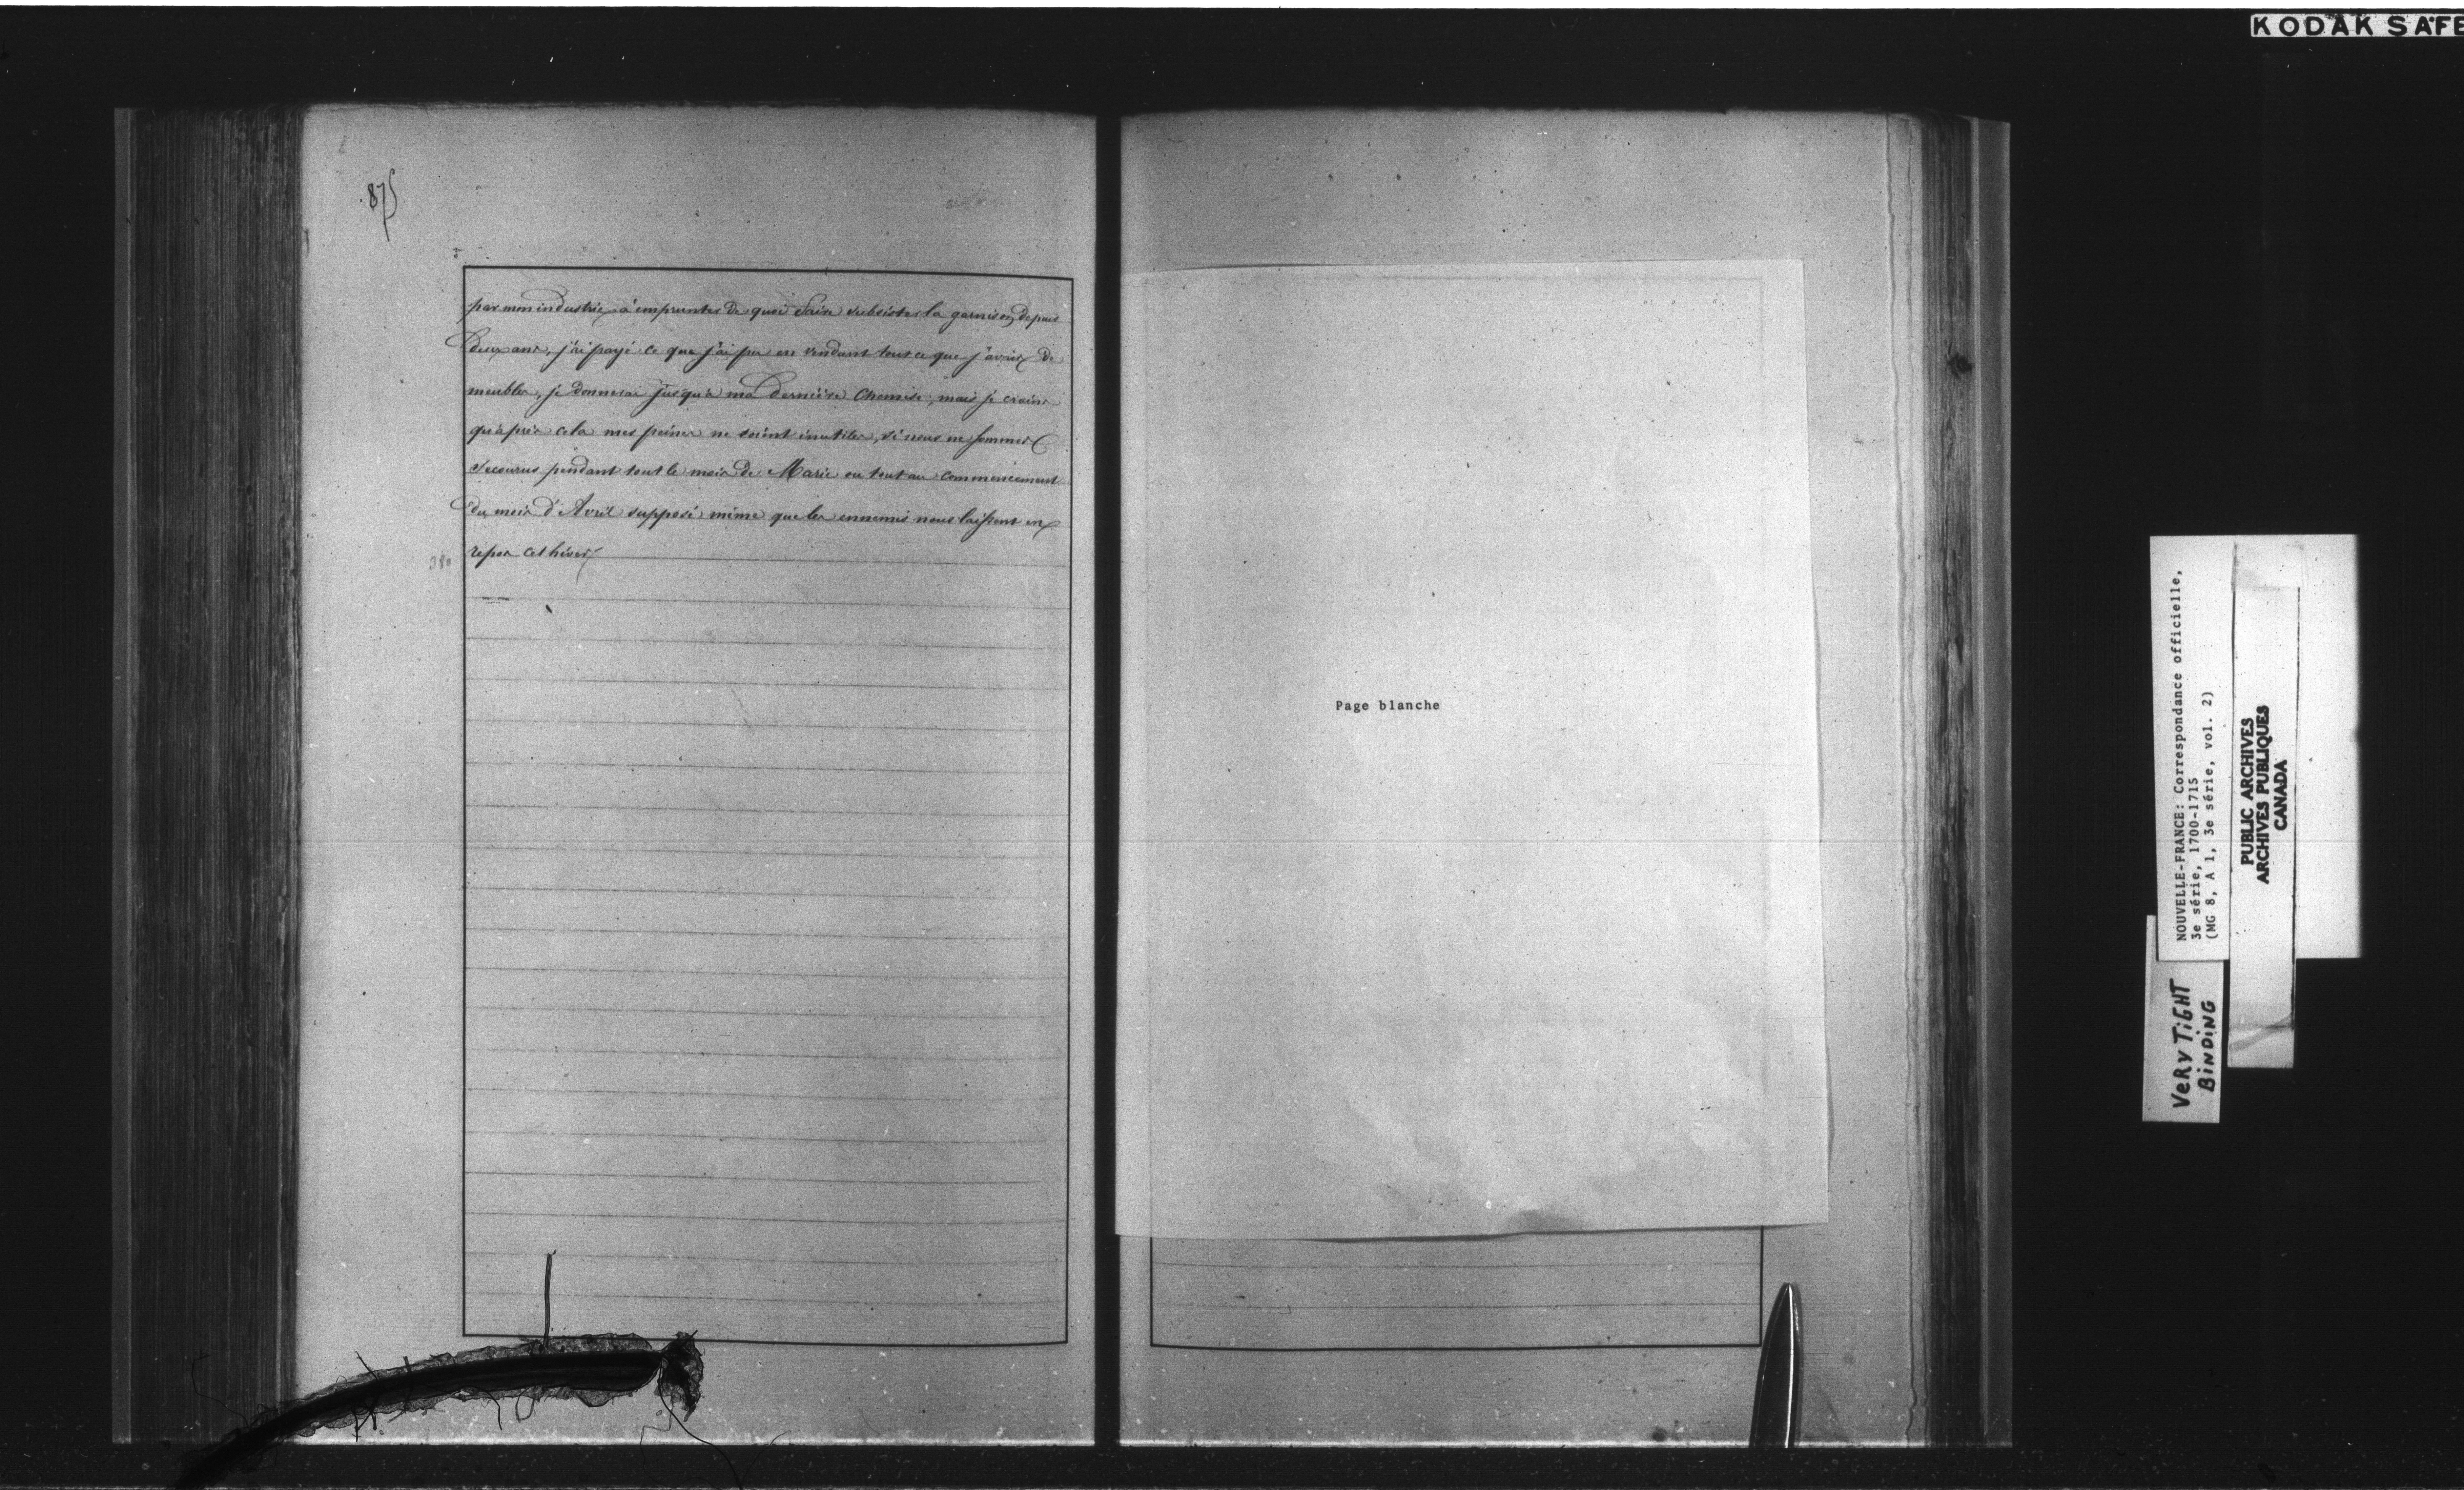 KODAK SAFE
875
par mon industrie à emprunter de quoi faire subsister la garnison, depuis
deux ans, j'ai payé ce que j'ai pu en vendant tout ce que j'avais de
meubles, je donnerai jusqu'à ma dernière chemise, mais je crains
qu'après cela mes peines ne soient inutiles, si nous ne sommes
secourus pendant tout le mois de Mars ou tout au commencement
du mois d'Avril supposé même que les ennemis nous laissent en
repos cet hiver
380
Page blanche
NOUVELLE-FRANCE: Correspondance officielle,
3e série, 1700-1715
(MG 8, A 1, 3e série, vol. 2)
PUBLIC ARCHIVES
ARCHIVES PUBLIQUES
CANADA
VERY TIGHT
BINDING